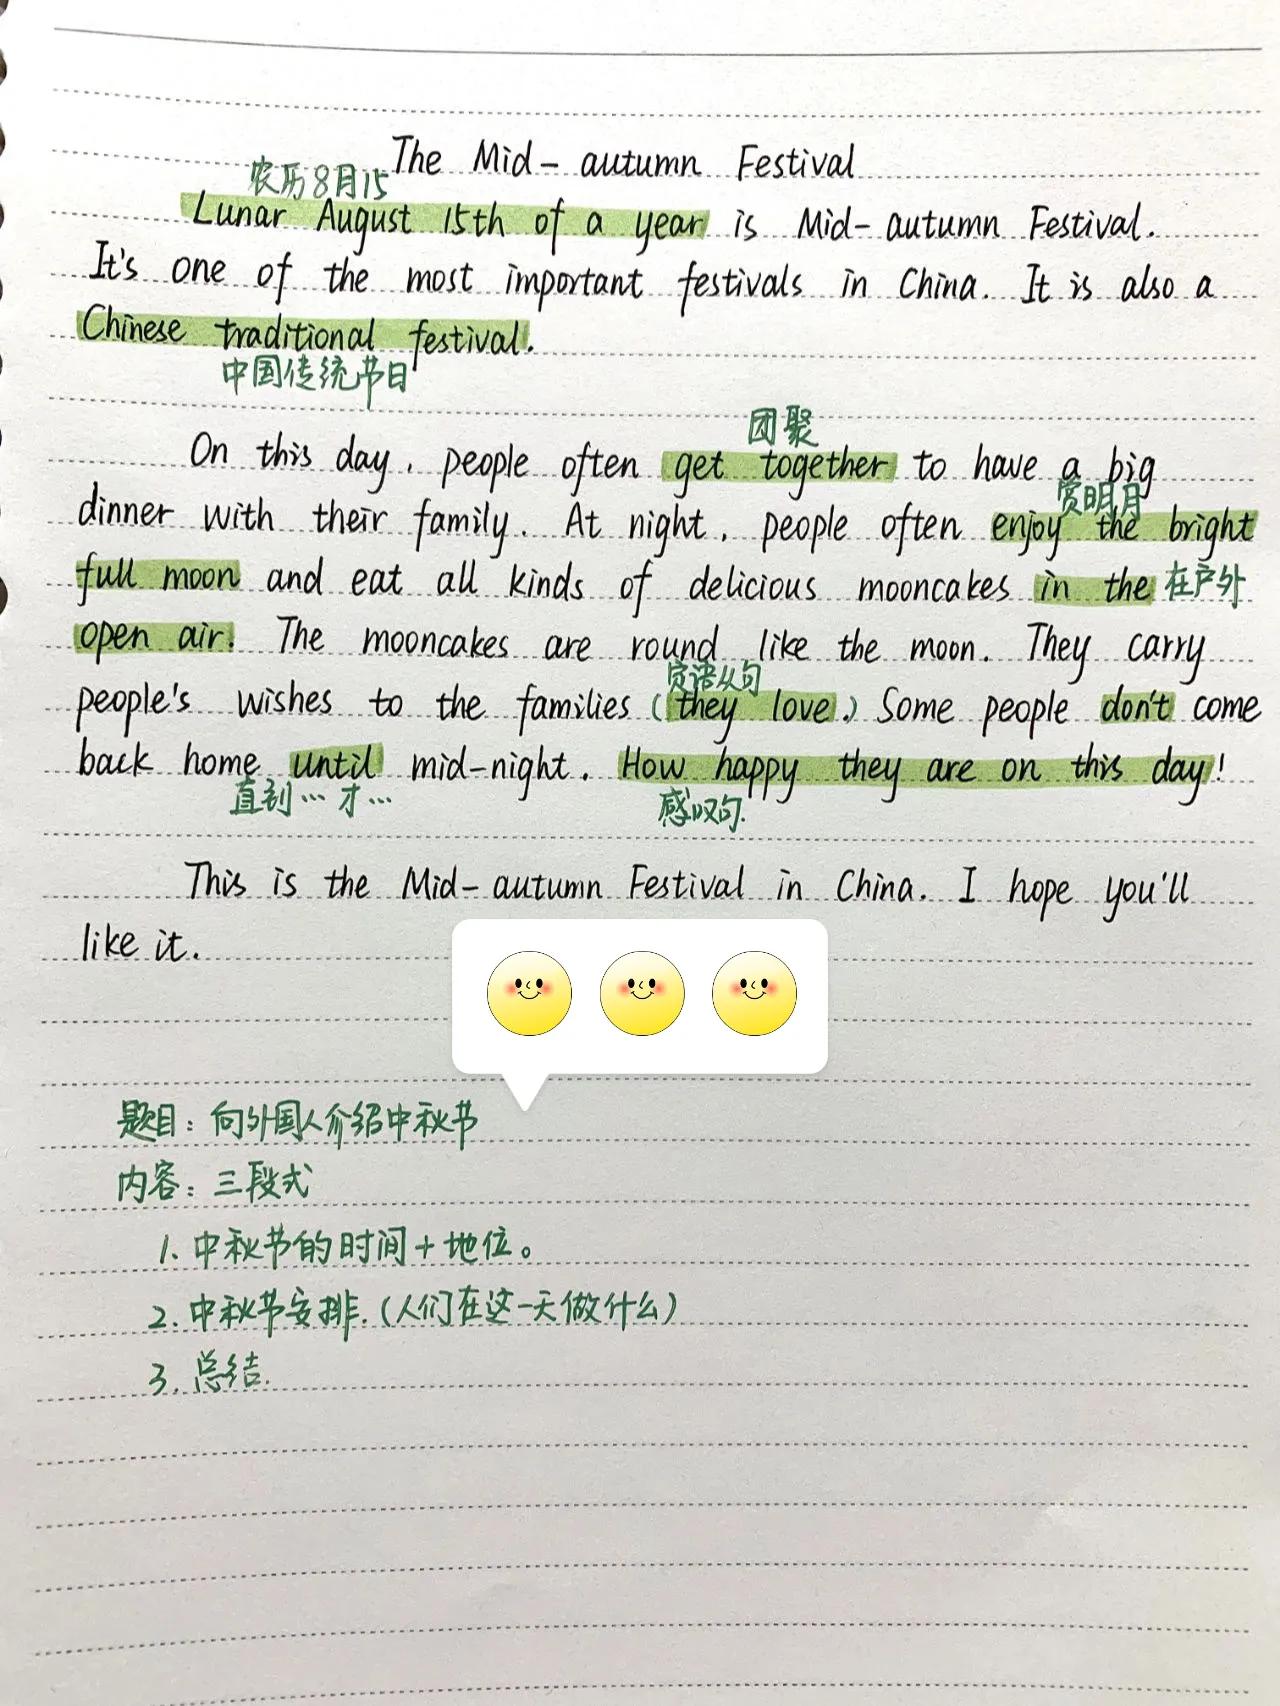 The Mid-autumn Festival
农历8月15
Lunar August 15th of a year is Mid-autumn Festival.
It's one of the most important festivals in China. It is also a
Chinese traditional festival.
中国传统节日
团聚
On this day, people often get together to have a big
赏明月
dinner with their family. At night, people often enjoy the bright
full moon and eat all kinds of delicious mooncakes in the 在户外
open air. The mooncakes are round like the moon. They carry
定语从句
people's wishes to the families (they love.) Some people don't come
back home until mid-night. How happy they are on this day!
直到…才…
感叹句.
This is the Mid-autumn Festival in China. I hope you'll
like it.
题目：向外国人介绍中秋节
内容：三段式
1. 中秋节的时间+地位。
2. 中秋节安排.(人们在这一天做什么)
3. 总结.